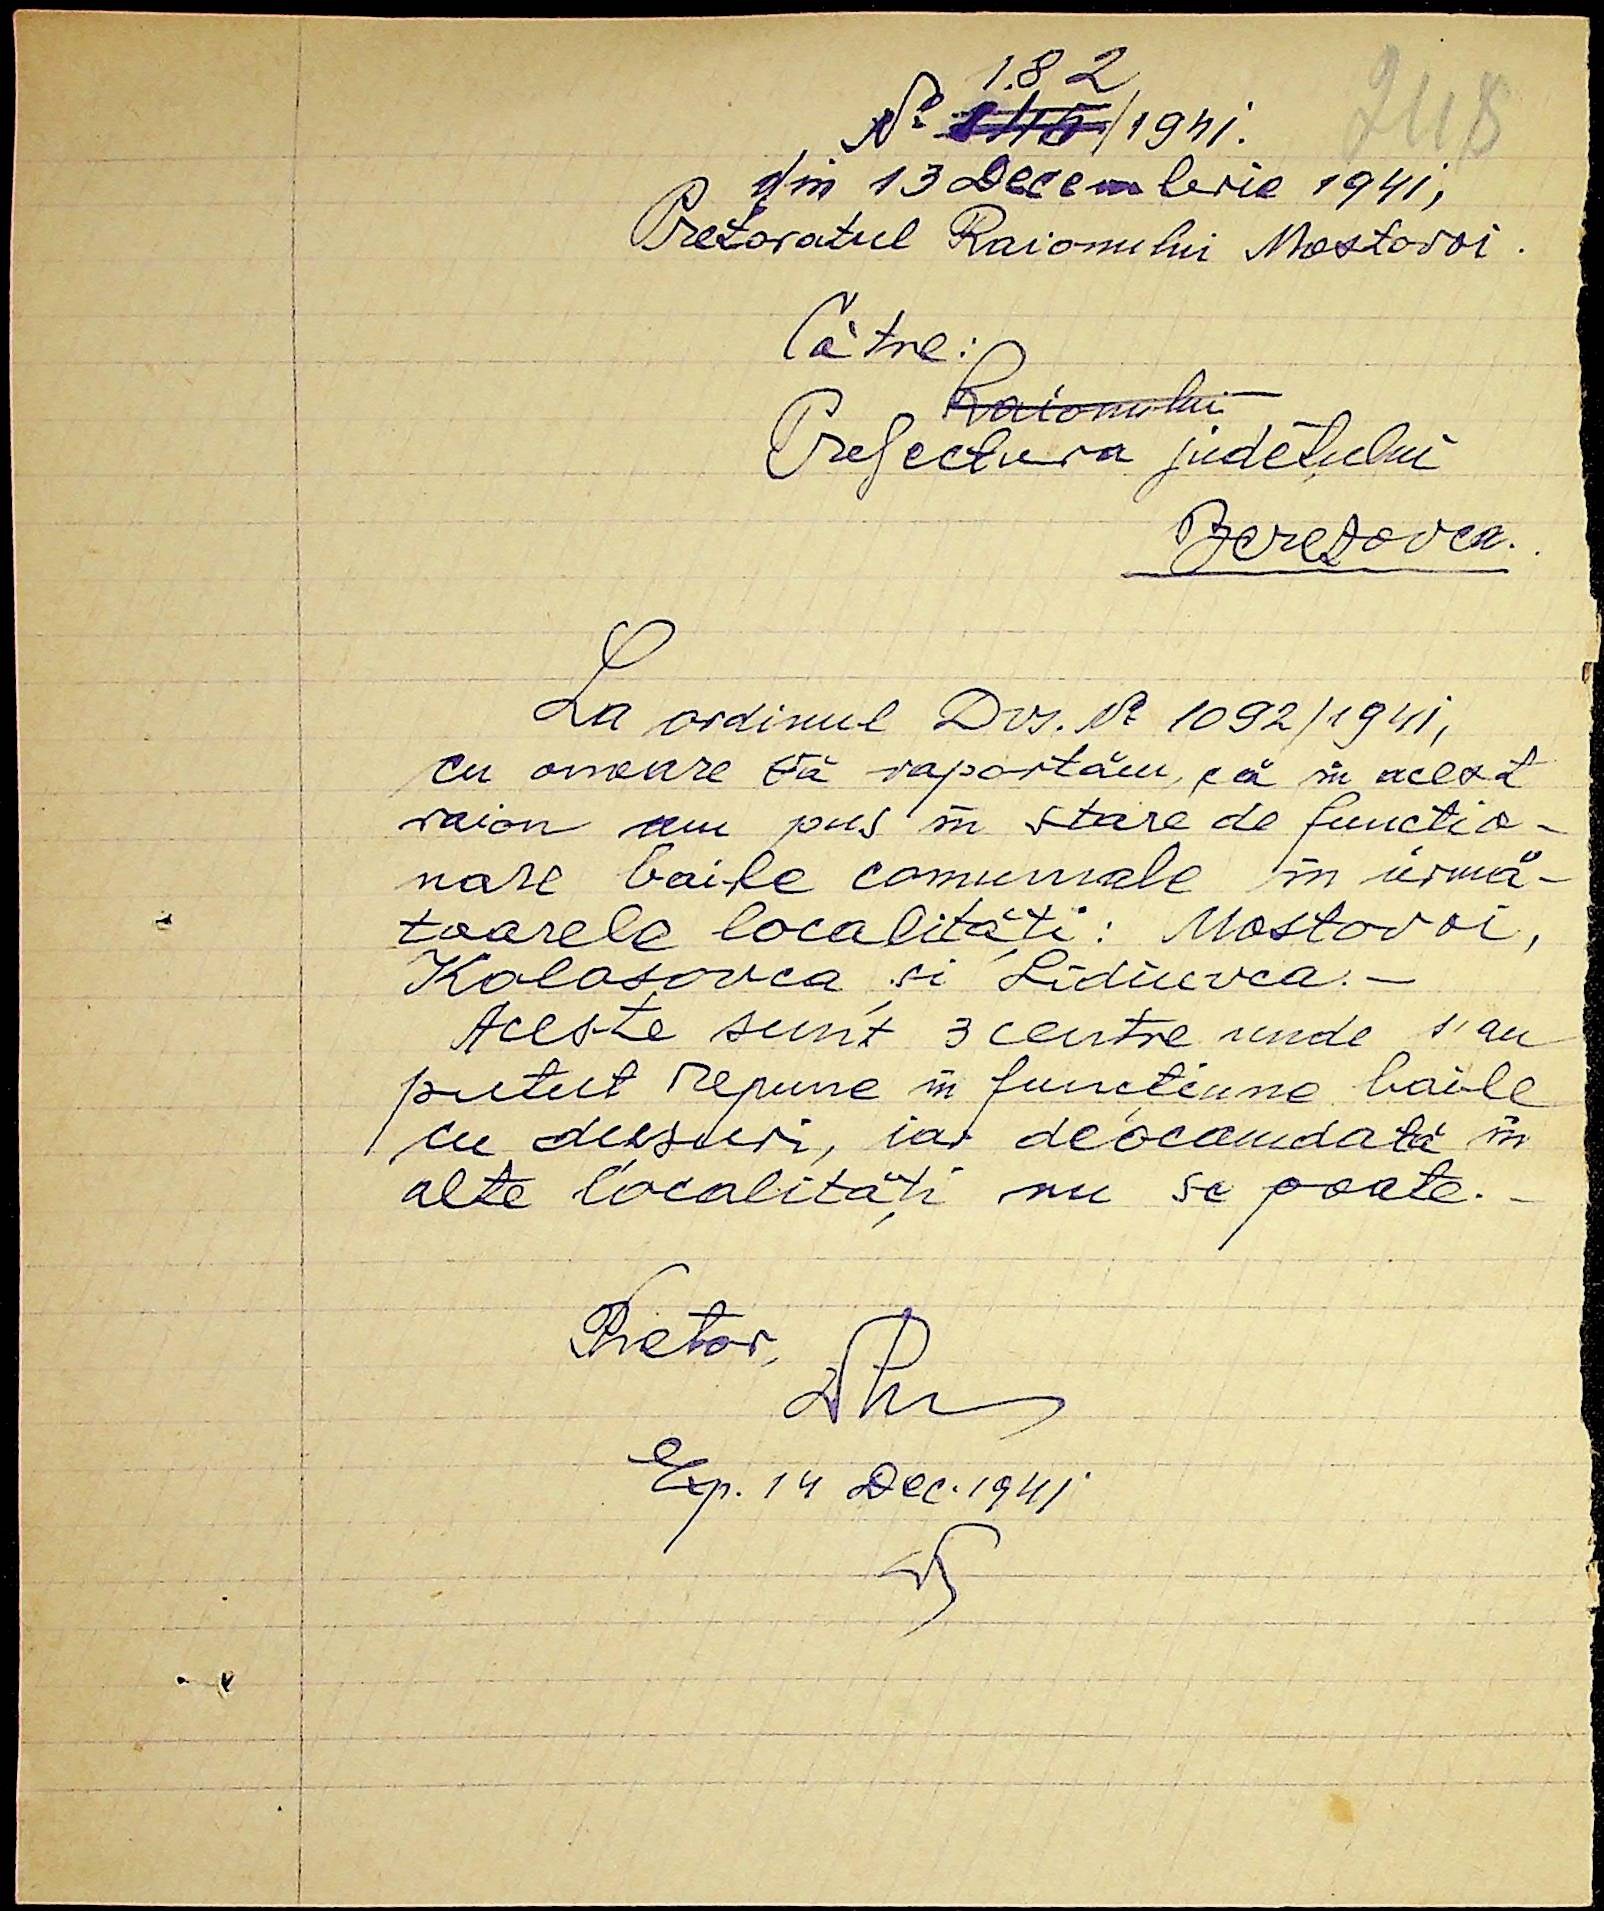 182
Nº /1941.
248
din 13 Decembrie 1941,
Pretoratul Raionului Mostovoi.
Către:
Raionului
Prefectura județului
Berezovca.
La ordinul Dvs. Nº 1092/1941,
cu onoare vă raportăm, că în acest
raion am pus în stare de functio-
nare baile comunale în urmă-
toarele localităţi: Mostovoi,
Kolosovca şi Lidiievca. -
Aceste sunt 3 centre unde s'au
putut repune în funcţiune baile
cu dușuri, iar deocamdată în
alte localităţi nu se poate. -
Pretor,
Exp. 14 Dec. 1941